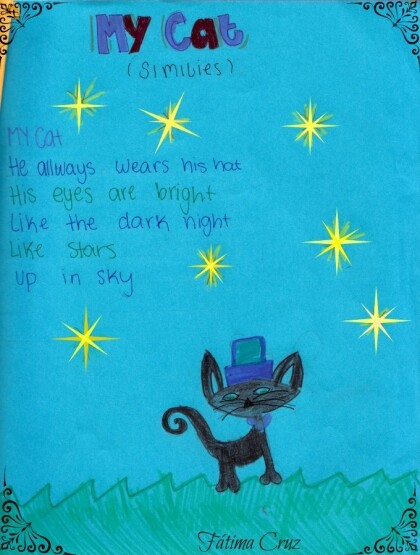 My Cat
(Similies)
MY Cat
He allways wears his hat
His eyes are bright
Like the dark night
Like Stars
up in sky
Fátima Cruz